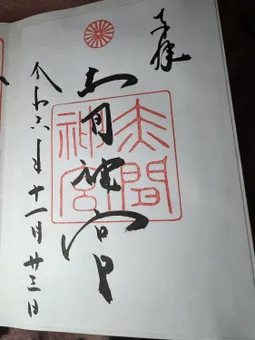 奉拝
赤間神宮
赤間
神宮
令和六年十一月廿三日